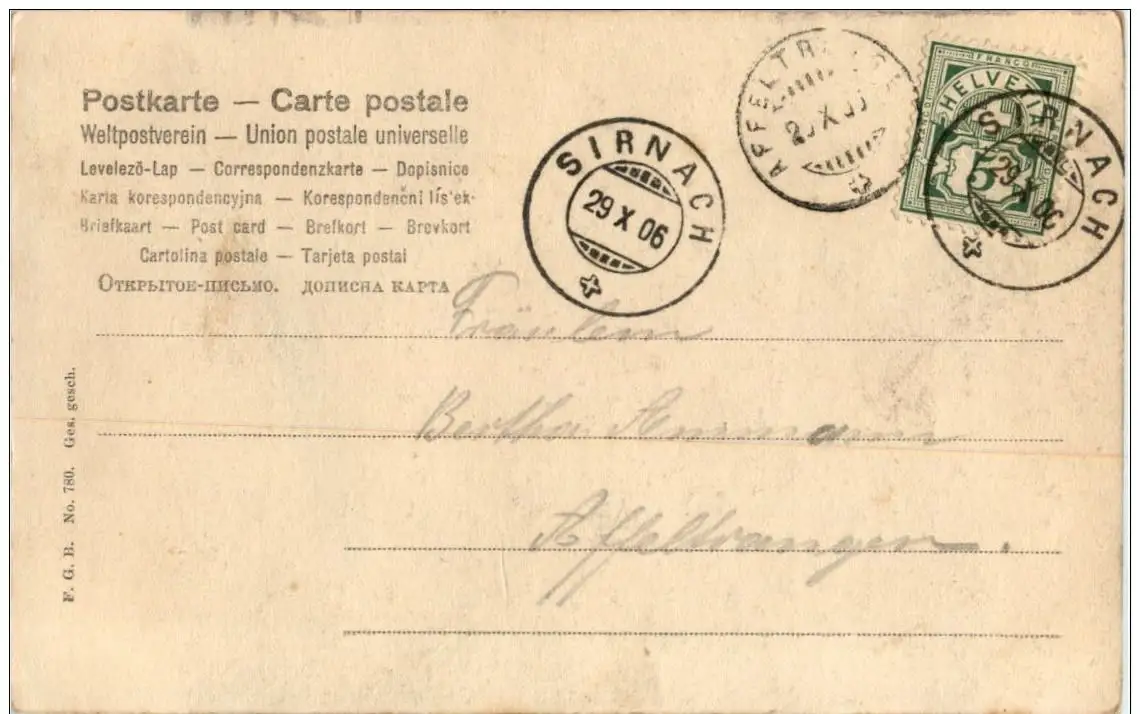 Postkarte — Carte postale
Weltpostverein — Union postale universelle
Levelezō-Lap — Correspondenzkarte — Dopisnice
Karta korespondencyjna — Korespondenčni lís'ek-
Briefkaart — Post card — Brefkort — Brevkort
Cartolina postale — Tarjeta postal
Открытое-письмо. дописна карта
SIRNACH
29 X 06
AFFELTRANGEN
X
FRANCO
HELVETIA
5
SIRNACH
29 X 06
Fräulein
Bertha Ammann
Affeltrangen.
F. G. B. No. 780. Ges. gesch.